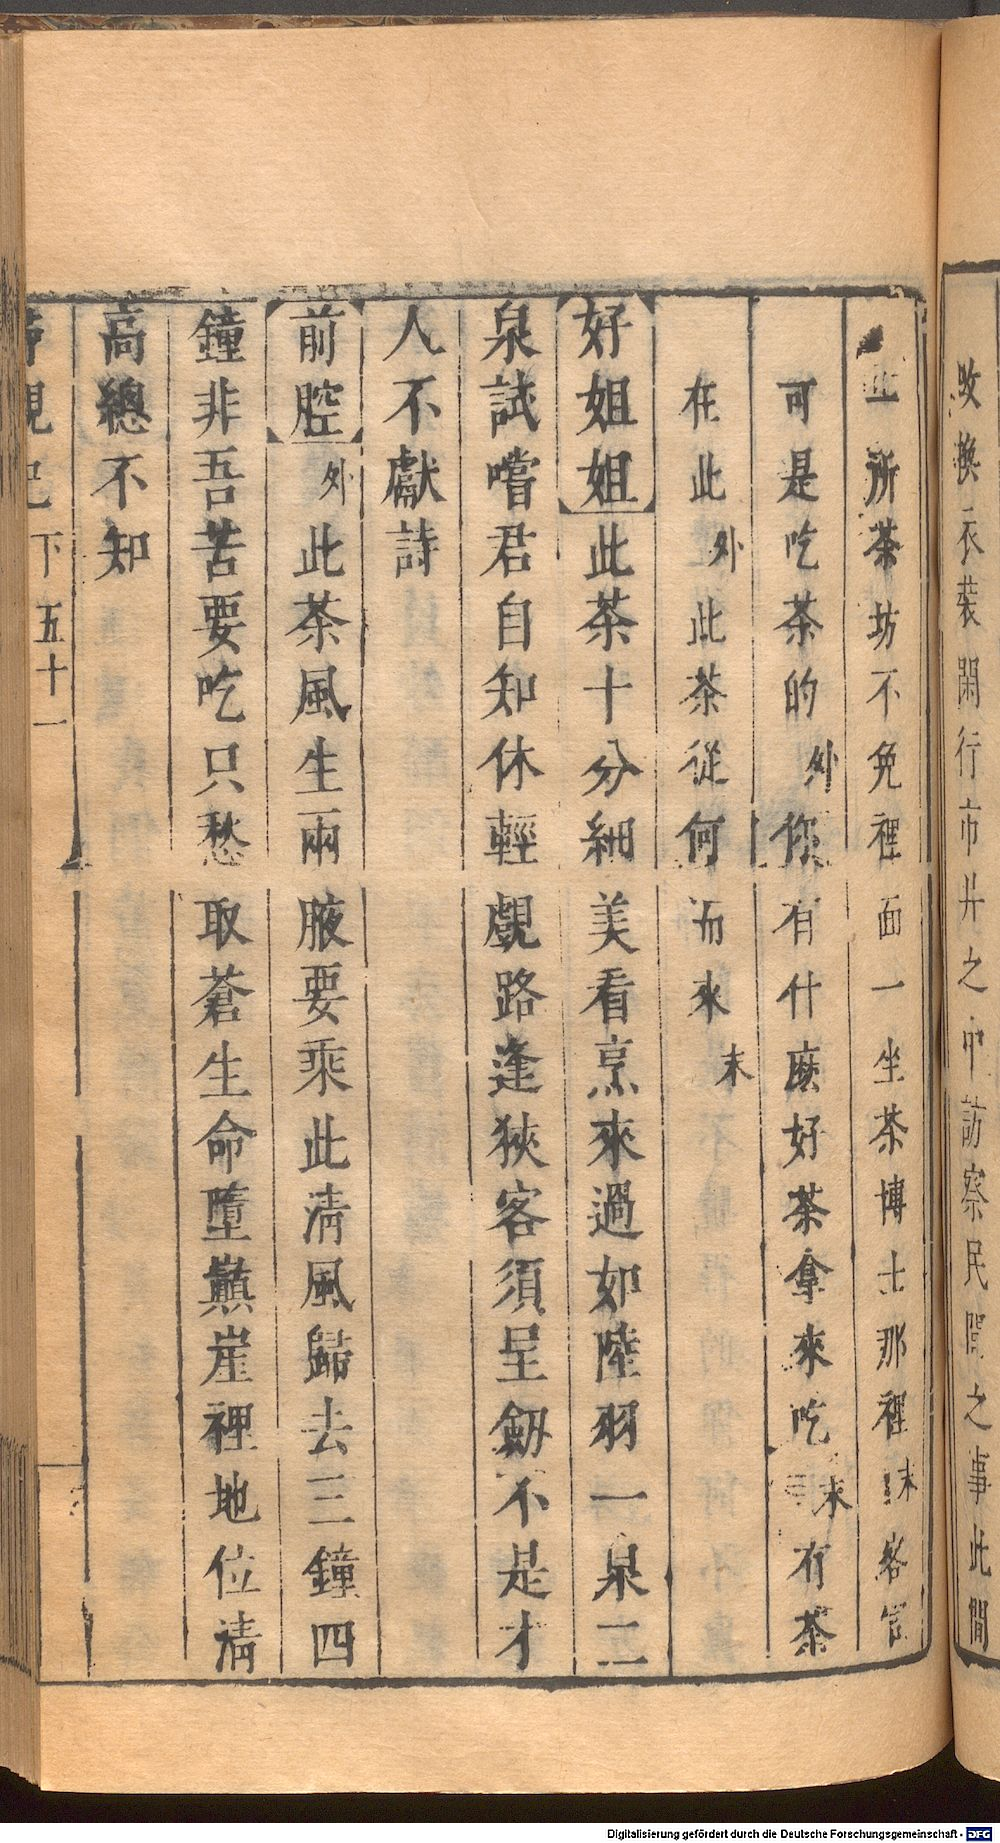 攺換衣裝閑行市井之中訪察民間之事此間
所茶坊不免裡面一坐茶博士那裡末客官
可是吃茶的外你有什麽好茶拿來吃末有茶
在此外此茶從何而來末
好姐姐此茶十分細美看烹來過如陸羽一泉二
泉試嚐君自知休輕覷路逢狹客須呈劒不是才
人不獻詩
前腔外此茶風生兩腋要乘此淸風歸去三鐘四
鐘非吾苦要吃只愁取蒼生命墮巔崖裡地位淸
高總不知
下 五十一
Digitalisierung gefördert durch die Deutsche Forschungsgemeinschaft - DFG